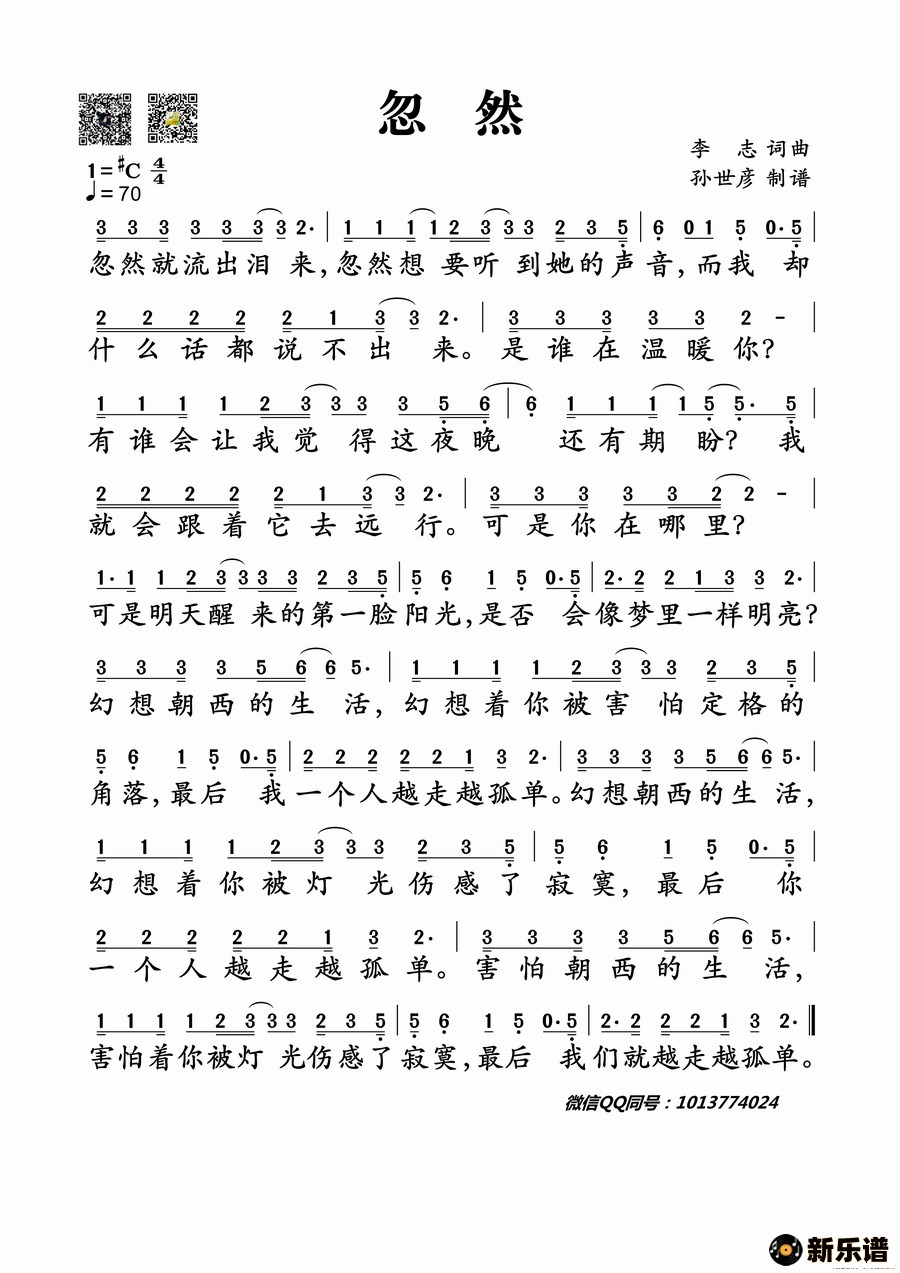 忽 然
李 志 词曲
孙世彦 制谱
1=#C 4/4
♩=70
3 3 3 3 3 3 3 2· | 1 1 1 1 2 3 3 3 2 3 5 | 6 0 1 5 0· 5 |
忽然就流出泪 来,忽然想 要听 到她的声音,而我 却
2 2 2 2 2 1 3 3 2· | 3 3 3 3 3 2 - |
什么话都说不出 来。是谁在温暖你?
1 1 1 1 2 3 3 3 3 5 6 | 6 1 1 1 1 5 5· 5 |
有谁会让我觉 得这夜晚 还有期 盼? 我
2 2 2 2 2 1 3 3 2· | 3 3 3 3 3 2 2 - |
就会跟着它去远 行。可是你在哪里?
1· 1 1 2 3 3 3 3 2 3 5 | 5 6 1 5 0· 5 | 2· 2 2 1 3 3 2· |
可是明天醒 来的第一脸阳光,是否 会像梦里一样明亮?
3 3 3 3 5 6 6 5· | 1 1 1 1 2 3 3 3 2 3 5 |
幻想朝西的生 活,幻想着你被害 怕定格的
5 6 1 5 0· 5 | 2 2 2 2 2 1 3 2· | 3 3 3 3 5 6 6 5· |
角落,最后 我一个人越走越孤单。幻想朝西的生 活,
1 1 1 1 2 3 3 3 2 3 5 | 5 6 1 5 0· 5 |
幻想着你被灯 光伤感了寂寞,最后 你
2 2 2 2 2 1 3 2· | 3 3 3 3 5 6 6 5· |
一个人越走越孤单。害怕朝西的生 活,
1 1 1 1 2 3 3 3 2 3 5 | 5 6 1 5 0· 5 | 2· 2 2 2 1 3 2· ‖
害怕着你被灯 光伤感了寂寞,最后 我们就越走越孤单。
微信QQ同号：1013774024
新乐谱